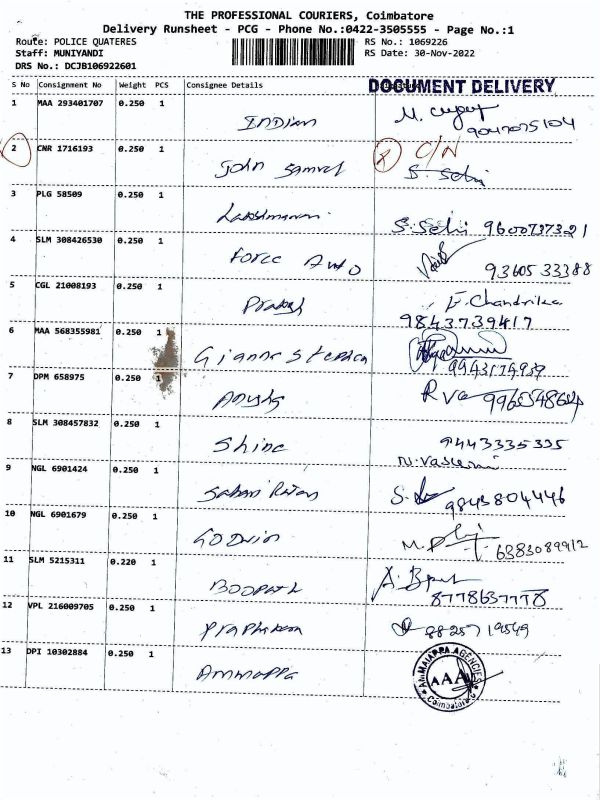 THE PROFESSIONAL COURIERS, Coimbatore
Delivery Runsheet - PCG - Phone No.:0422-3505555 - Page No.:1
Route: POLICE QUATERES RS No.: 1069226
Staff: MUNIYANDI RS Date: 30-Nov-2022
DRS No.: DCJB106922601
S No Consignment No Weight PCS Consignee Details DOCUMENT DELIVERY
1 MAA 293401707 0.250 1 INDIAN
2 CNR 1716193 0.250 1 John Samuel C/N S. Selvi
3 PLG 58509 Lakshmanan S. Selvi 9600737321
4 SLM 308426530 0.250 1 Force Auto 9360533388
5 CGL 21008193 0.250 1 Prakash E. Chandrika
9843739417
6 MAA 568355981 0.250 1 Gianna
7 DPM 658975 0.250 1
8 SLM 308457832 0.250 1 Shine 9443335335
9 NGL 6901424 0.250 1 9843804446
10 NGL 6901679 0.250 1 Godwin 6383089912
11 SLM 5215311 0.220 1 Boopath
8778637778
12 VPL 216009705 0.250 1 8825719549
13 DPI 10302884 0.250 1 Ammappa
AMMAIAPPA AGENCIES
AAA
Coimbatore